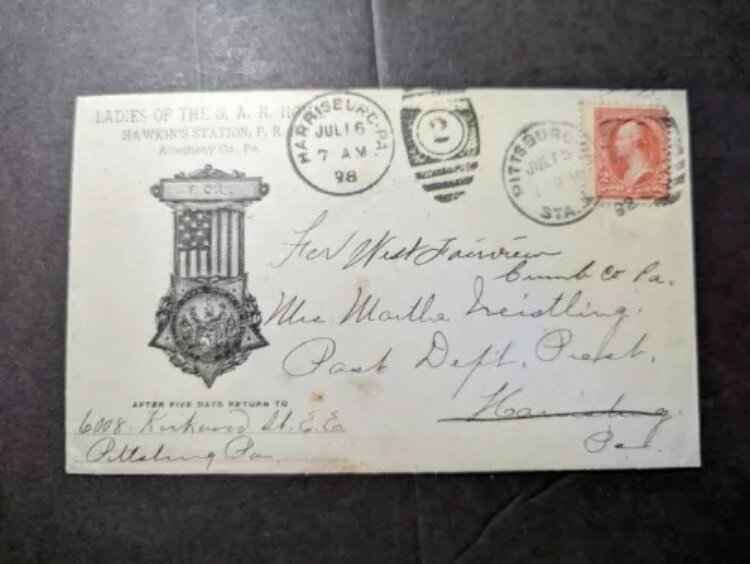 LADIES OF THE G. A. R. HO
HAWKIN'S STATION, P. R.
Allegheny Co., Pa.
HARRISBURG, PA.
JUL 16
7 AM
98
2
PITTSBURG
JUL 15
STA.
98
F. C. L.
For West Fairview
Cumb Co Pa.
Mrs. Martha Neistling.
Past Dept. Prest.
Harrisburg.
Pa.
AFTER FIVE DAYS RETURN TO
6008. Kirkwood St. E. E.
Pittsburg Pa